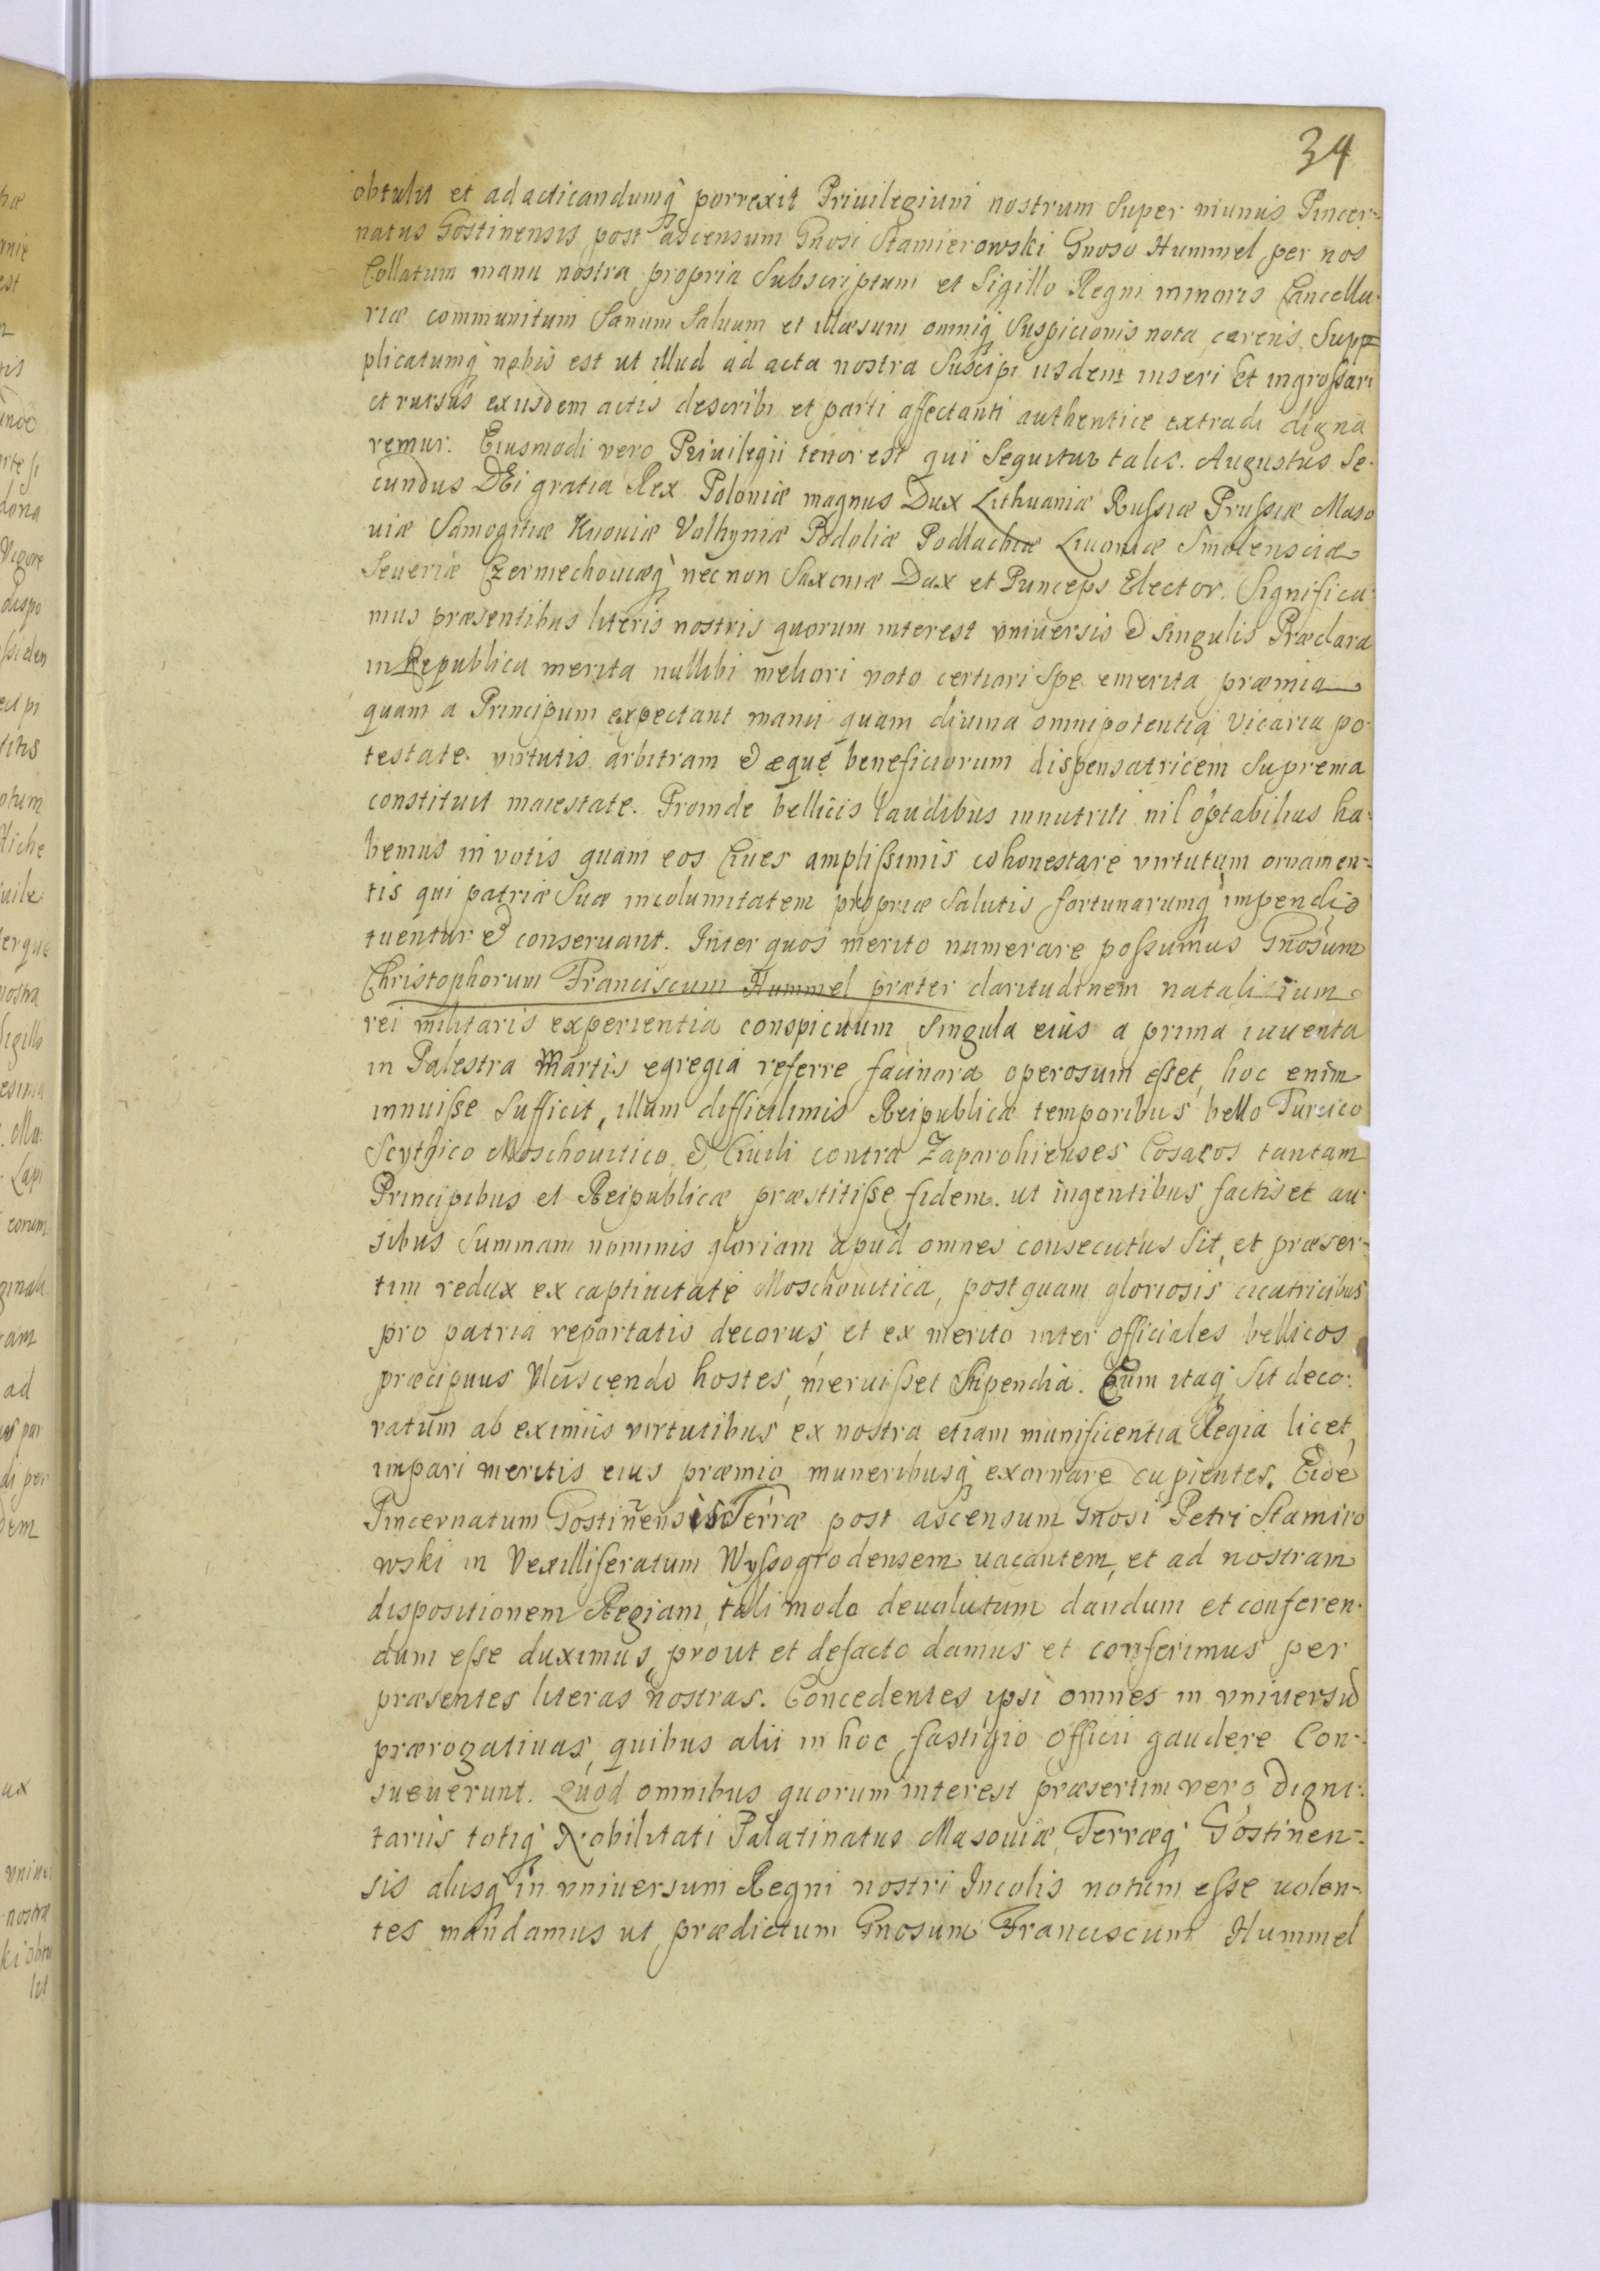 34
obtulit et ad acticandumq́ porrexit Priuilegium nostrum super munus Pincer-
natus Gostinensis post ascensum Gnosi Stamierowski Gnoso Hummel per nos
Collatum manu nostra propria Subscriptum et Sigillo Regni minoris Cancella-
riæ communitum Sanum Saluum et illæsum omniq́ Suspicionis nota carens. Supp=
plicatumq́ nobis est ut illud ad acta nostra Suscipi iisdem inseri et ingroſsari
et rursus ex iisdem actis describi et parti affectanti authentice extradi digna
remur. Eiusmodi vero Priuilegii tenor est qui Sequitur talis. Augustus Se-
cundus DEi gratia Rex Poloniæ magnus Dux Lithuaniæ Ruſsiæ Pruſsiæ Maso
uiæ Samogitiæ Kiiouiæ Volhyniæ Podoliæ Podlachiæ Liuoniæ Smolensciæ
Seueriæ Czerniechouiæq́ necnon Saxoniæ Dux et Princeps Elector. Significa-
mus præsentibus literis nostris quorum interest vniuersis & singulis Præclara
in Republica merita nullibi meliori voto certiori Spe emerita præmia
quam a Principum expectant manu quam diuina omnipotentia Vicaria po-
testate virtutis arbitram & æque beneficiorum dispensatricem Suprema
constituit maiestate. Proinde bellicis laudibus innutriti nil optabilius ha-
bemus in votis quam eos Ciues ampliſsimis cohonestare virtutum ornamen-
tis qui patriæ Suæ incolumitatem propriæ Salutis fortunarumq́ impendio
tuentur & conseruant. Inter quos merito numerare poſsumus Gnosum
Christophorum Franciscum Hummel præter claritudinem natalitium
rei militaris experientia conspicuum Singula eius a prima iuuenta
in Palestra Martis egregia referre facinora operosum eſset, hoc enim
innuiſse Sufficit, illum difficilimis Reipublicæ temporibus bello Turcico
Scythico Moschouitico & Ciuili contra Zaparohienses Cosacos tantam
Principibus et Reipublicæ præstitiſse fidem. ut ingentibus factis et au-
sibus Summam nominis gloriam apud omnes consecutus Sit, et præser-
tim redux ex captiuitate Moschouitica, postquam gloriosis cicatricibus
pro patria reportatis decorus et ex merito inter officiales bellicos
præcipuus Vlciscendo hostes, meruiſset Stipendia. Cum itaq́ Sit deco-
ratum ab eximiis virtutibus ex nostra etiam munificentia Regia licet
impari meritis eius præmio muneribusq́ exornare cupientes. Eide
Pincernatum Gostinensis Terræ post ascensum Gnosi Petri Stamiro
wski in Vexilliferatum Wyſsogrodensem uacantem, et ad nostram
dispositionem Regiam, tali modo deuolutum dandum et conferen-
dum eſse duximus, prout et defacto damus et conferimus per
præsentes literas nostras. Concedentes ipsi omnes in vniuersu
prærogatiuas, quibus alii in hoc fastigio officii gaudere Con-
sueuerunt. Quod omnibus quorum interest præsertim vero digni-
tariis totiq́ Nobilitati Palatinatus Masouiæ Terræq́ Gostinen-
sis aliisq́ in vniuersum Regni nostri Incolis notum eſse uolen-
tes mandamus ut prædictum Gnosum Franciscum Hummel